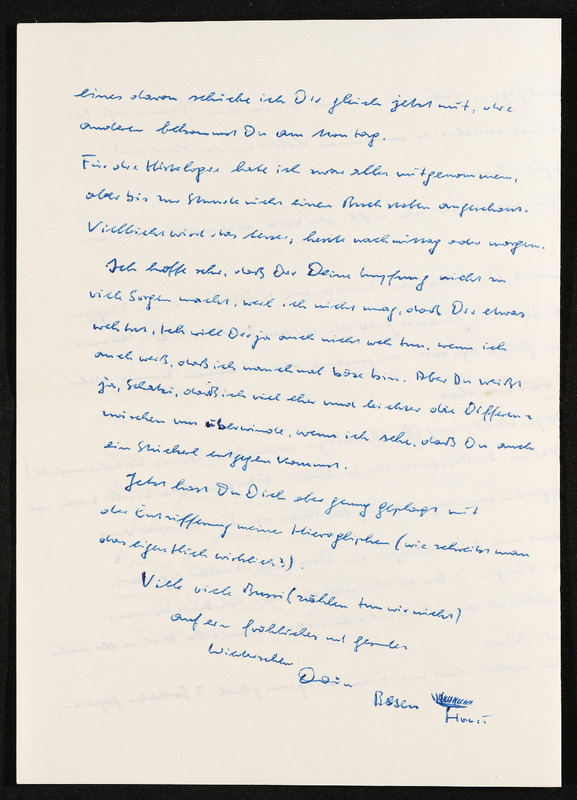 eines davon schicke ich Dir gleich jetzt mit, die
anderen bekommst Du am Montag.
Für die Histologie habe ich zwar alles mitgenommen,
aber bis zur Stunde nicht einen Buchstaben angeschaut.
Vielleicht wird das besser, heute nachmittag oder morgen.
Ich hoffe sehr, daß Dir Deine Impfung nicht zu
viele Sorgen macht, weil ich nicht mag, daß Dir etwas
weh tut. Ich will Dir ja auch nicht weh tun, wenn ich
auch weiß, daß ich manchmal böse bin. Aber Du weißt
ja, Schatzi, daß ich viel eher und leichter die Differenz
zwischen uns überwinde, wenn ich sehe, daß Du auch
ein Stückerl entgegen kommst.
Jetzt hast Du Dich aber genug geplagt mit
der Entzifferung meiner Hierogliphen (wie schreibt man
das eigentlich wirklich?).
Viele viele Bussi (zählen tun wir nicht)
auf ein fröhliches und gesundes
Wiedersehen
Dein
Besen
Horst